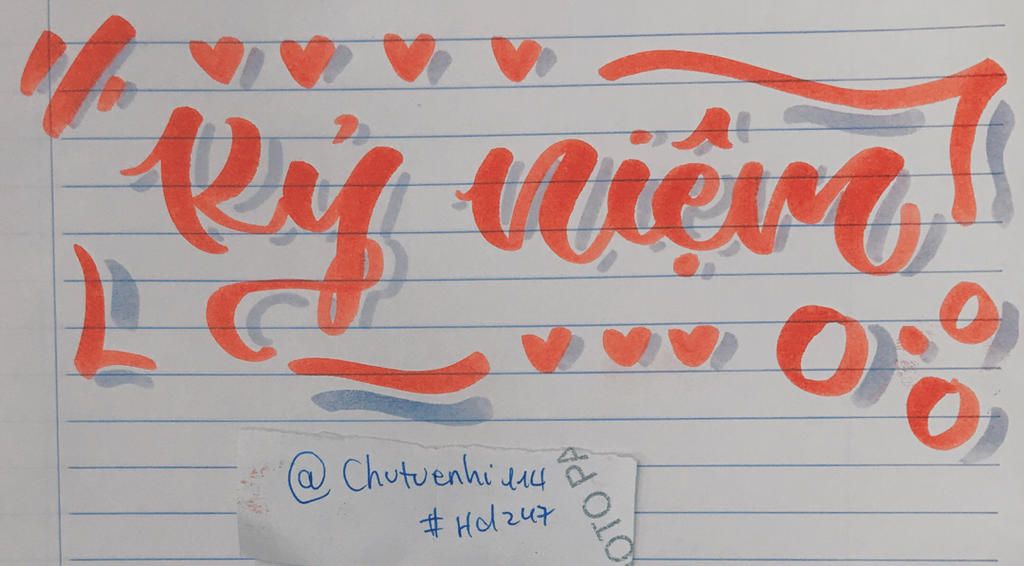 Kỷ niệm
@Chutuenhi114
#Hd247
OTO PA